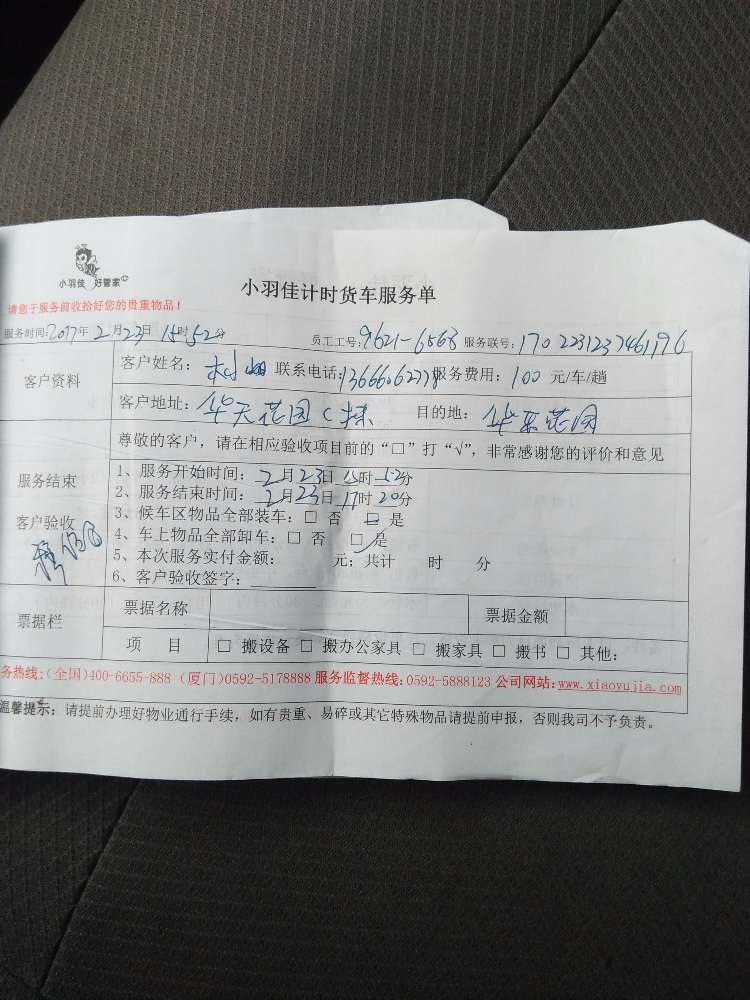 小羽佳 好管家
小羽佳计时货车服务单
请您于服务前收拾好您的贵重物品！
服务时间:2017年2月23日15时52分 员工工号:9621-6568 服务联号:1702231237461196
客户资料
客户姓名： 联系电话: 服务费用：100 元/车/趟
客户地址：华天花园C栋 目的地：华乐花园
尊敬的客户，请在相应验收项目前的“□”打“√”，非常感谢您的评价和意见
服务结束
客户验收
1、服务开始时间：2月23日15时52分
2、服务结束时间：2月23日17时20分
3、候车区物品全部装车：□ 否 □ 是
4、车上物品全部卸车：□ 否 □ 是
5、本次服务实付金额： 元；共计 时 分
6、客户验收签字：
票据栏
票据名称 票据金额
项 目 □ 搬设备 □ 搬办公家具 □ 搬家具 □ 搬书 □ 其他：
务热线：(全国)400-6655-888 (厦门)0592-5178888 服务监督热线：0592-5888123 公司网站：www.xiaoyujia.com
温馨提示：请提前办理好物业通行手续，如有贵重、易碎或其它特殊物品请提前申报，否则我司不予负责。